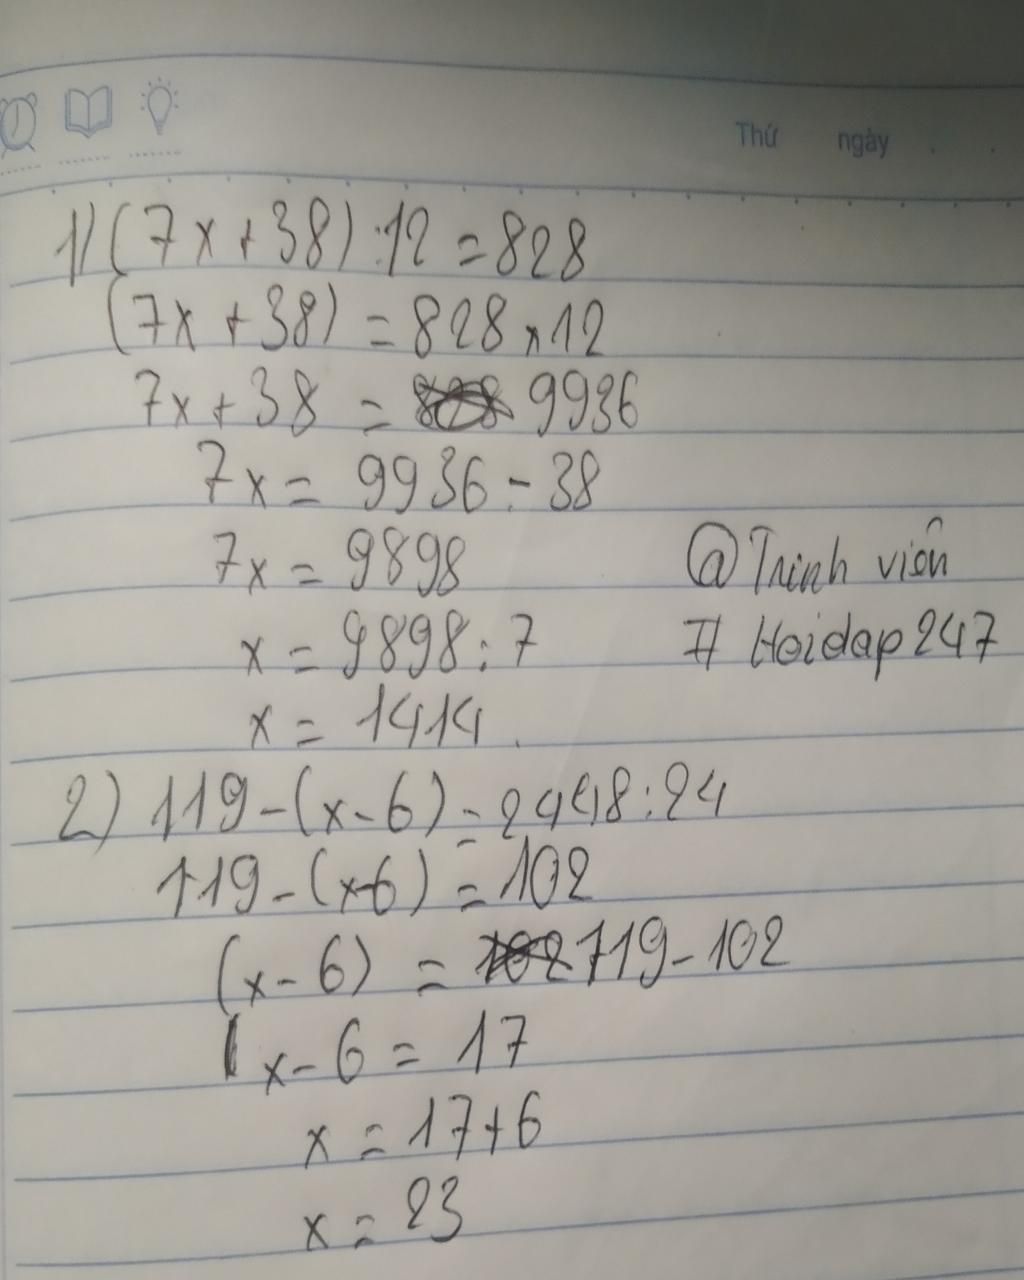 Thứ ngày
1) (7x + 38) : 12 = 828
(7x + 38) = 828 x 12
7x + 38 = 9936
7x = 9936 - 38
7x = 9898 @Trinh viên
x = 9898 : 7 # Hoidap247
x = 1414.
2) 119 - (x - 6) = 2448 : 24
119 - (x-6) = 102
(x - 6) = 119 - 102
x - 6 = 17
x = 17 + 6
x = 23